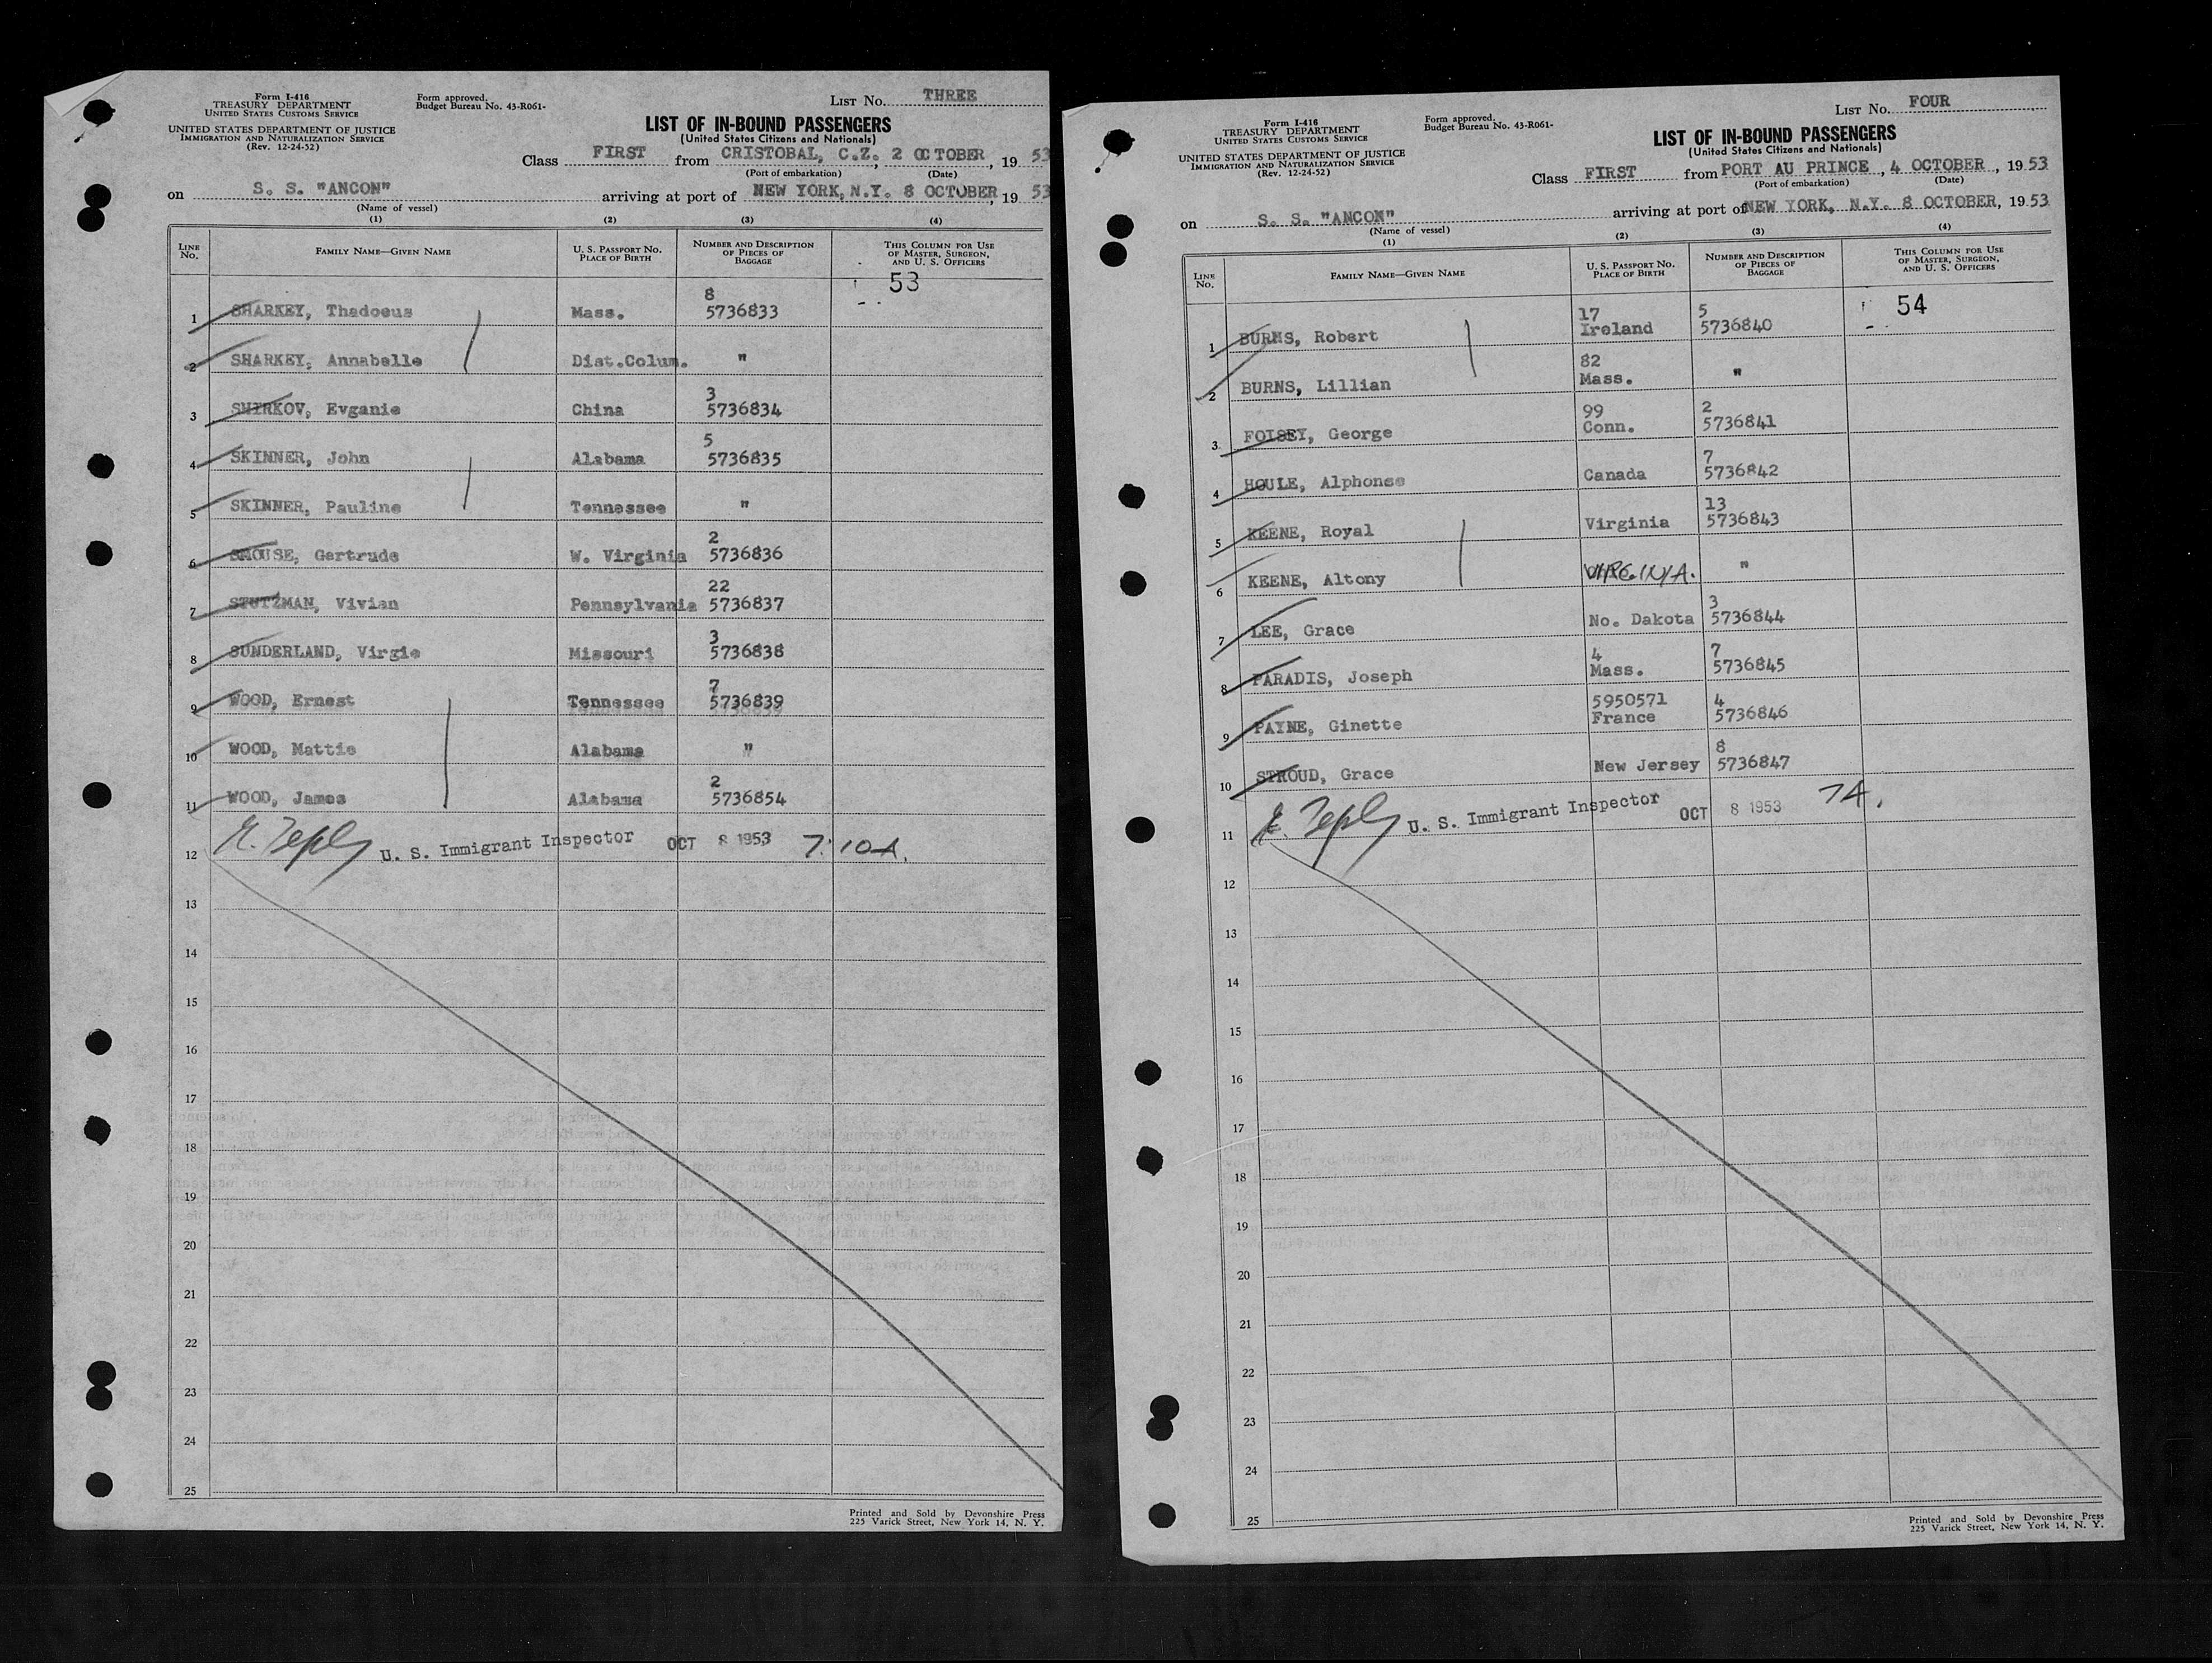 Form I-416
TREASURY DEPARTMENT
UNITED STATES CUSTOMS SERVICE
UNITED STATES DEPARTMENT OF JUSTICE
IMMIGRATION AND NATURALIZATION SERVICE
(Rev. 12-24-52)
Form approved.
Budget Bureau No. 43-R061-
LIST No. THREE
LIST OF IN-BOUND PASSENGERS
(United States Citizens and Nationals)
Class FIRST from CRISTOBAL, C.Z., 2 OCTOBER, 1953
(Port of embarkation) (Date)
on S. S. "ANCON" arriving at port of NEW YORK, N.Y. 8 OCTOBER, 1953
(Name of vessel)
(1) (2) (3) (4)
LINE No. FAMILY NAME—GIVEN NAME U. S. PASSPORT No. PLACE OF BIRTH NUMBER AND DESCRIPTION OF PIECES OF BAGGAGE THIS COLUMN FOR USE OF MASTER, SURGEON, AND U. S. OFFICERS
53
8
1 SHARKEY, Thadoeus Mass. 5736833
2 SHARKEY, Annabelle Dist.Colum. "
3
3 SHIRKOV, Evganie China 5736834
5
4 SKINNER, John Alabama 5736835
5 SKINNER, Pauline Tennessee "
2
6 SMOUSE, Gertrude W. Virginia 5736836
22
7 STUTZMAN, Vivian Pennsylvania 5736837
3
8 SUNDERLAND, Virgie Missouri 5736838
7
9 WOOD, Ernest Tennessee 5736839
10 WOOD, Mattie Alabama "
2
11 WOOD, James Alabama 5736854
12 U. S. Immigrant Inspector OCT 8 1953 7:10A.
13
14
15
16
17
18
19
20
21
22
23
24
25
Printed and Sold by Devonshire Press
225 Varick Street, New York 14, N. Y.
Form I-416
TREASURY DEPARTMENT
UNITED STATES CUSTOMS SERVICE
UNITED STATES DEPARTMENT OF JUSTICE
IMMIGRATION AND NATURALIZATION SERVICE
(Rev. 12-24-52)
Form approved.
Budget Bureau No. 43-R061-
LIST No. FOUR
LIST OF IN-BOUND PASSENGERS
(United States Citizens and Nationals)
Class FIRST from PORT AU PRINCE, 4 OCTOBER, 1953
(Port of embarkation) (Date)
on S. S. "ANCON" arriving at port of NEW YORK, N.Y. 8 OCTOBER, 1953
(Name of vessel)
(1) (2) (3) (4)
LINE No. FAMILY NAME—GIVEN NAME U. S. PASSPORT No. PLACE OF BIRTH NUMBER AND DESCRIPTION OF PIECES OF BAGGAGE THIS COLUMN FOR USE OF MASTER, SURGEON, AND U. S. OFFICERS
17 5 54
1 BURNS, Robert Ireland 5736840
82
2 BURNS, Lillian Mass. "
99 2
3 FOISEY, George Conn. 5736841
7
4 HOULE, Alphonse Canada 5736842
13
5 KEENE, Royal Virginia 5736843
6 KEENE, Altony VIRGINIA. "
3
7 LEE, Grace No. Dakota 5736844
4 7
8 PARADIS, Joseph Mass. 5736845
5950571 4
9 PAYNE, Ginette France 5736846
8
10 STROUD, Grace New Jersey 5736847
11 U. S. Immigrant Inspector OCT 8 1953 7A.
12
13
14
15
16
17
18
19
20
21
22
23
24
25
Printed and Sold by Devonshire Press
225 Varick Street, New York 14, N. Y.